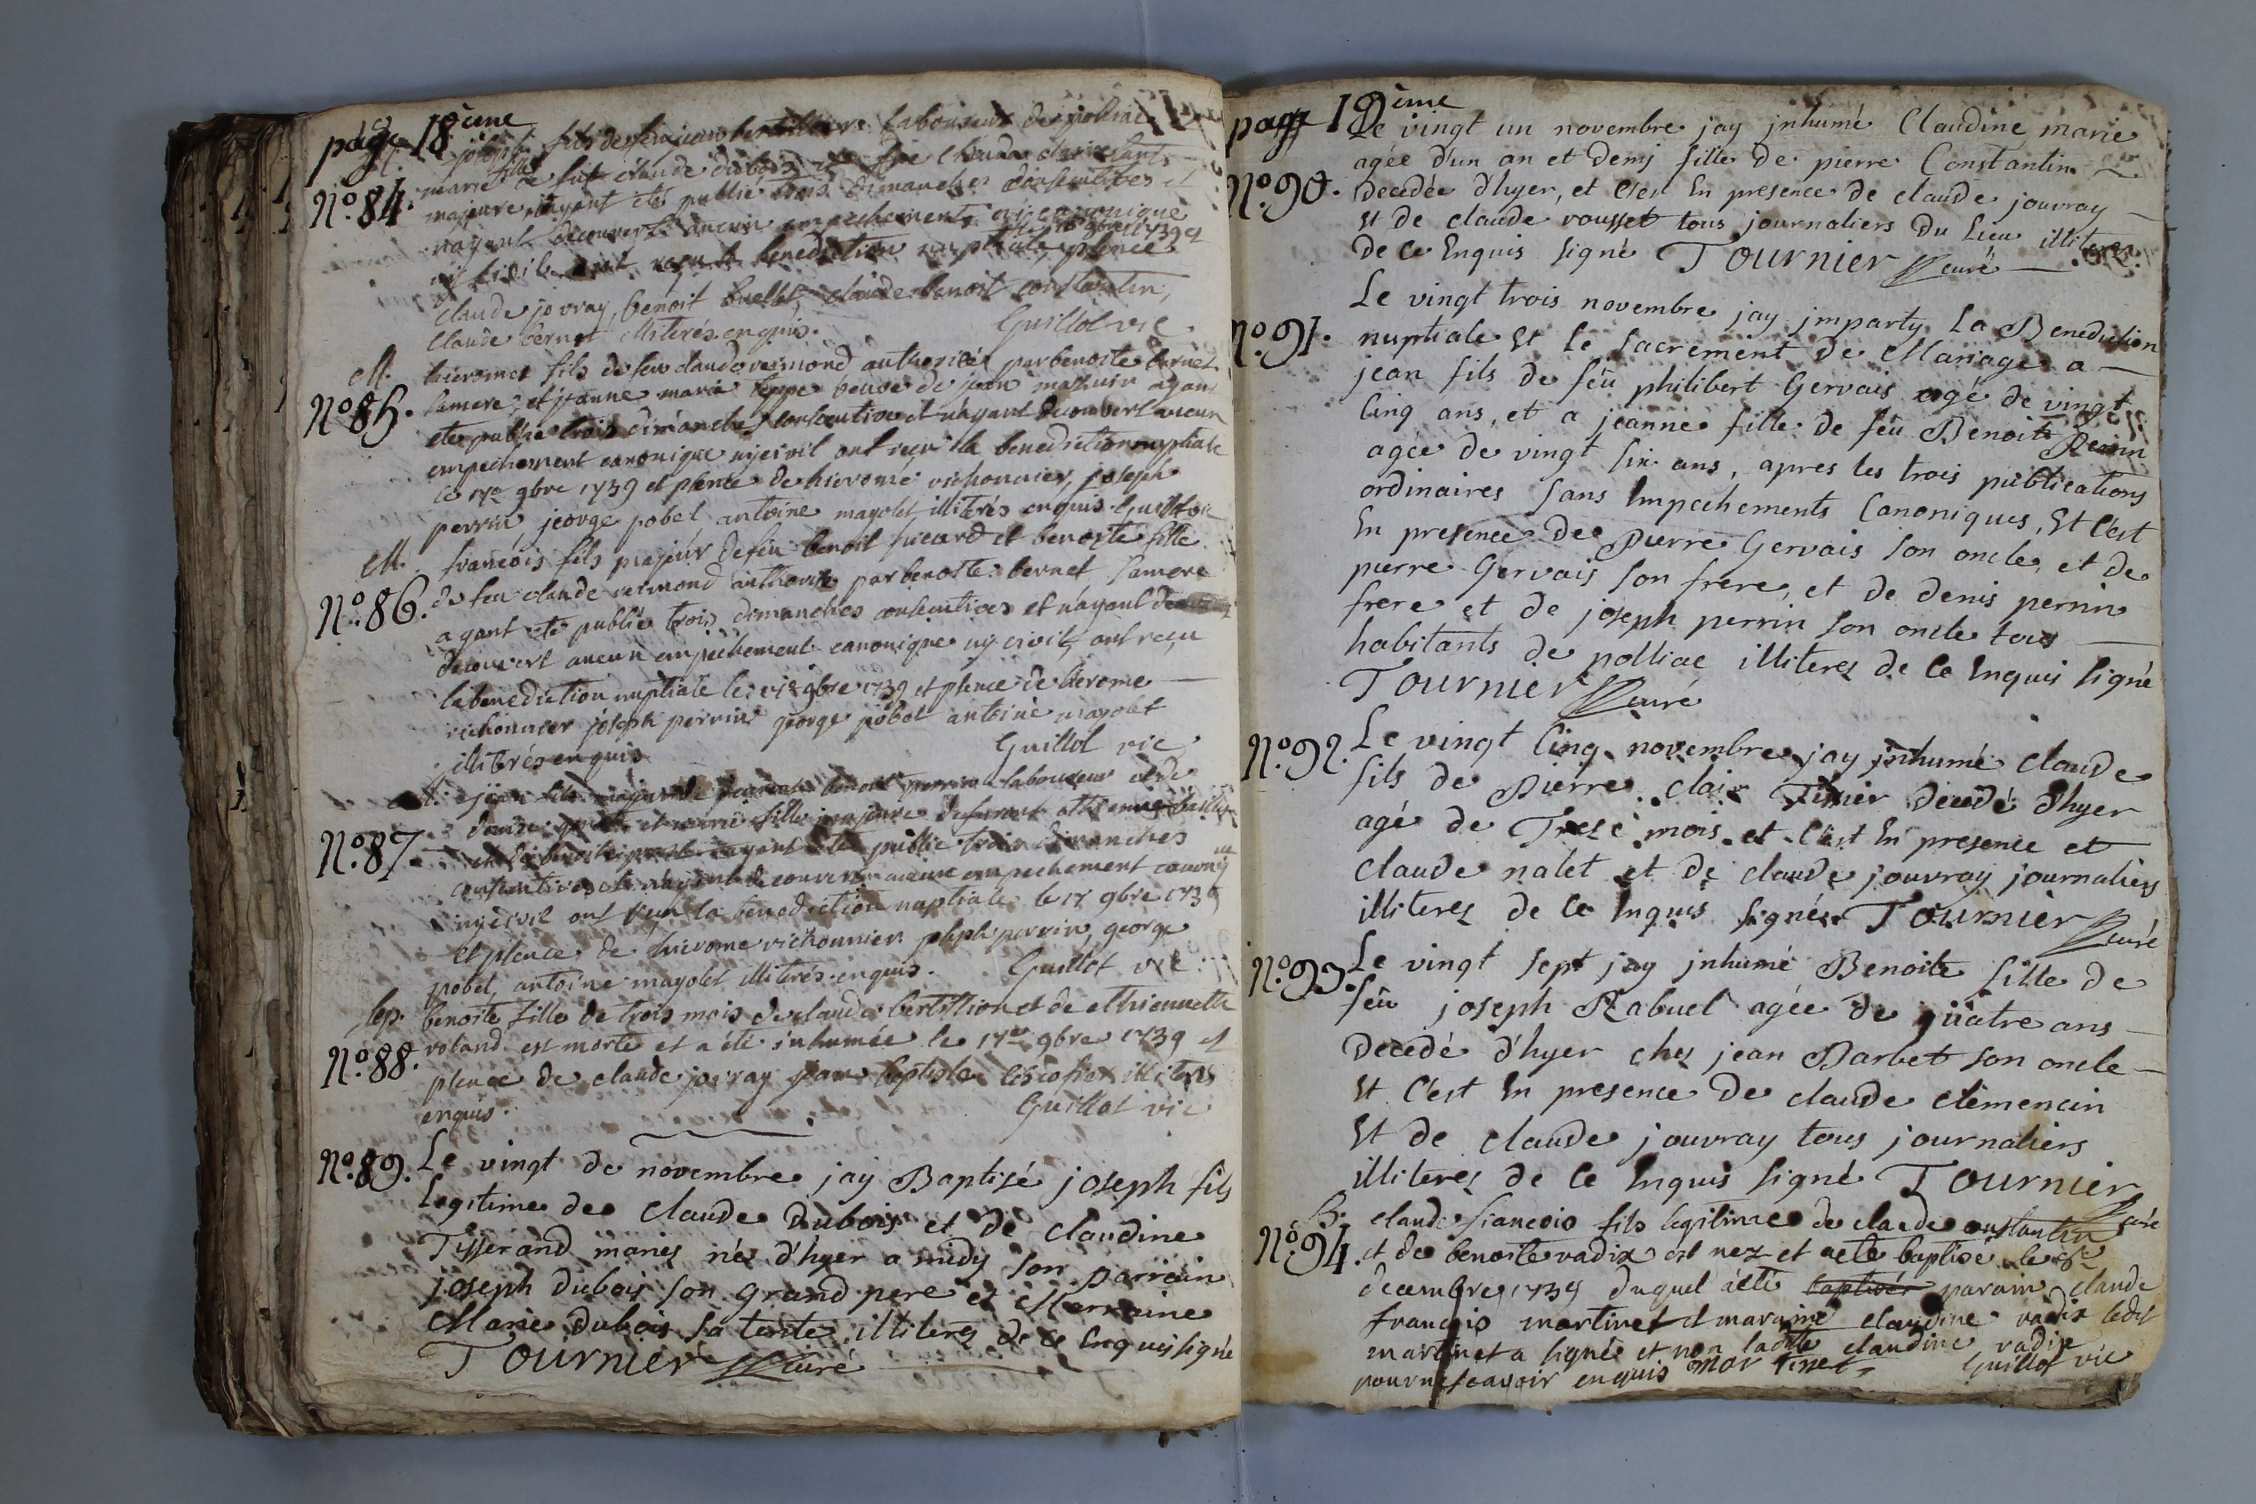 page 18ème
joseph fils de feu jean bertillion laboureur de polliac
N.º 84. marie fille de feu claude dubois et de claudine
majeure, ayant été publié trois dimanches consecutives et
nayant decouvert aucun empechement ny canonique
ny civil ont reçu la benediction nuptiale le 16 9bre 1739 et plence
claude jovray, benoit buellet, claude benoit constantin,
claude bernet illiterés enquis. Guillot vic
M. hieromet fils de feu claude vermond authorisé par benoite bernet
N.º 85. samere, et jeanne marie veuve de jean ayant
été publié trois dimanches consecutive et nayant decouvert aucun
empechement canonique nycivil ont reçu la benediction nuptiale
le 17e 9bre 1739 et plence de hierome richonnier, joseph
perrin, jeorge pobel antoine mayolet illiterés enquis. Guillot vic
M. francois fils majeur defeu benoit sicard et benoite fille
N.º 86. de feu claude vermond authorisé par benoite bernet samere
ayant eté publié trois dimanches consecutives et n'ayant
decouvert aucun empechement canonique ny civil, ont reçu
la benediction nuptiale le 17e 9bre 1739 et plence de hierome
richonnier joseph perrin george pobel antoine mayolet
illiterés enquis Guillot vic
jean fils benoit perrin laboureur et de
et marie fille majeure
N.º 87. ayant été publié trois dimanches
consecutives et n'ayant decouvert aucun empechement canoniq ue
nycivil ont reçu la benediction nuptiale le 17 9bre 1739
et plence de hierome richonnier jseph perrin, george
pobel, antoine mayolet illiterés enquis. Guillot vic
sep. benoite fille de trois mois de claude bertillion et de ethiennette
N.º 88. voland est morte et a été inhumée le 17e 9bre 1739 et
plence de claude jovray jean baptiste illiterés
enquis. Guillot vic
N.º 89. Le vingt de novembre jay Baptisé joseph fils
Legitime de claude Dubois et de claudine
Tisserand mariés né d'hyer a midy son parrain
joseph dubois son grand pere et Merraine
Marie dubois sa tente, illiteres de ce Enquis signé
Tournier curé
page 19ème
Le vingt un novembre jay jnhumé Claudine marie
agée d'un an et demj fille de pierre Constantin
N.º 90. decedée d'hyer, et c'est En presence de claude jouvray
Et de claude rousset tous journaliers du Lieu illiteres
de ce Enquis signé Tournier curé
Le vingt trois novembre jay jmparty La Benediction
N.º 91. nuptiale Et le sacrement de Mariage a
jean fils de fëu philibert Gervais agé de vingt
cinq ans, et a jeanne fille de fëu Benoit Perrin
agée de vingt six ans, apres les trois publications
ordinaires sans Empechements Canoniques, Et C'est
En presence de Pierre Gervais son oncle, et de
pierre Gervais son frere, et de denis perrin
frere et de joseph perrin son oncle tous
habitants de polliac illiteres de ce Enquis signé
Tournier curé
N.º 92. Le vingt cinq novembre jay jnhumé claude
fils de Pierre clair Tissier decedé d'hyer
agé de Treze mois et c'est En presence et
claude nalet et de claude jouvray journaliers
illiteres de ce Enquis signé Tournier curé
N.º 93. Le vingt sept jay jnhumé Benoite fille de
fëu joseph Rabuel agée de quatre ans
Decedé d'hyer chés jean Barbet son oncle
Et c'est En presence de claude clemencin
Et de claude jouvray tous journaliers
illiteres de ce Enquis signé Tournier curé
B. claude francois fils legitime de claude constantin
N.º 94. et de benoite vadix est nez et aeté baptisé le 8e
decembre 1739 duquel aété baptisé parain claude
francois martinet et maraine claudine vadix ledit
martinet a signé et non ladite claudine vadix
pour ne scavoir enquis martinet Guillot vic